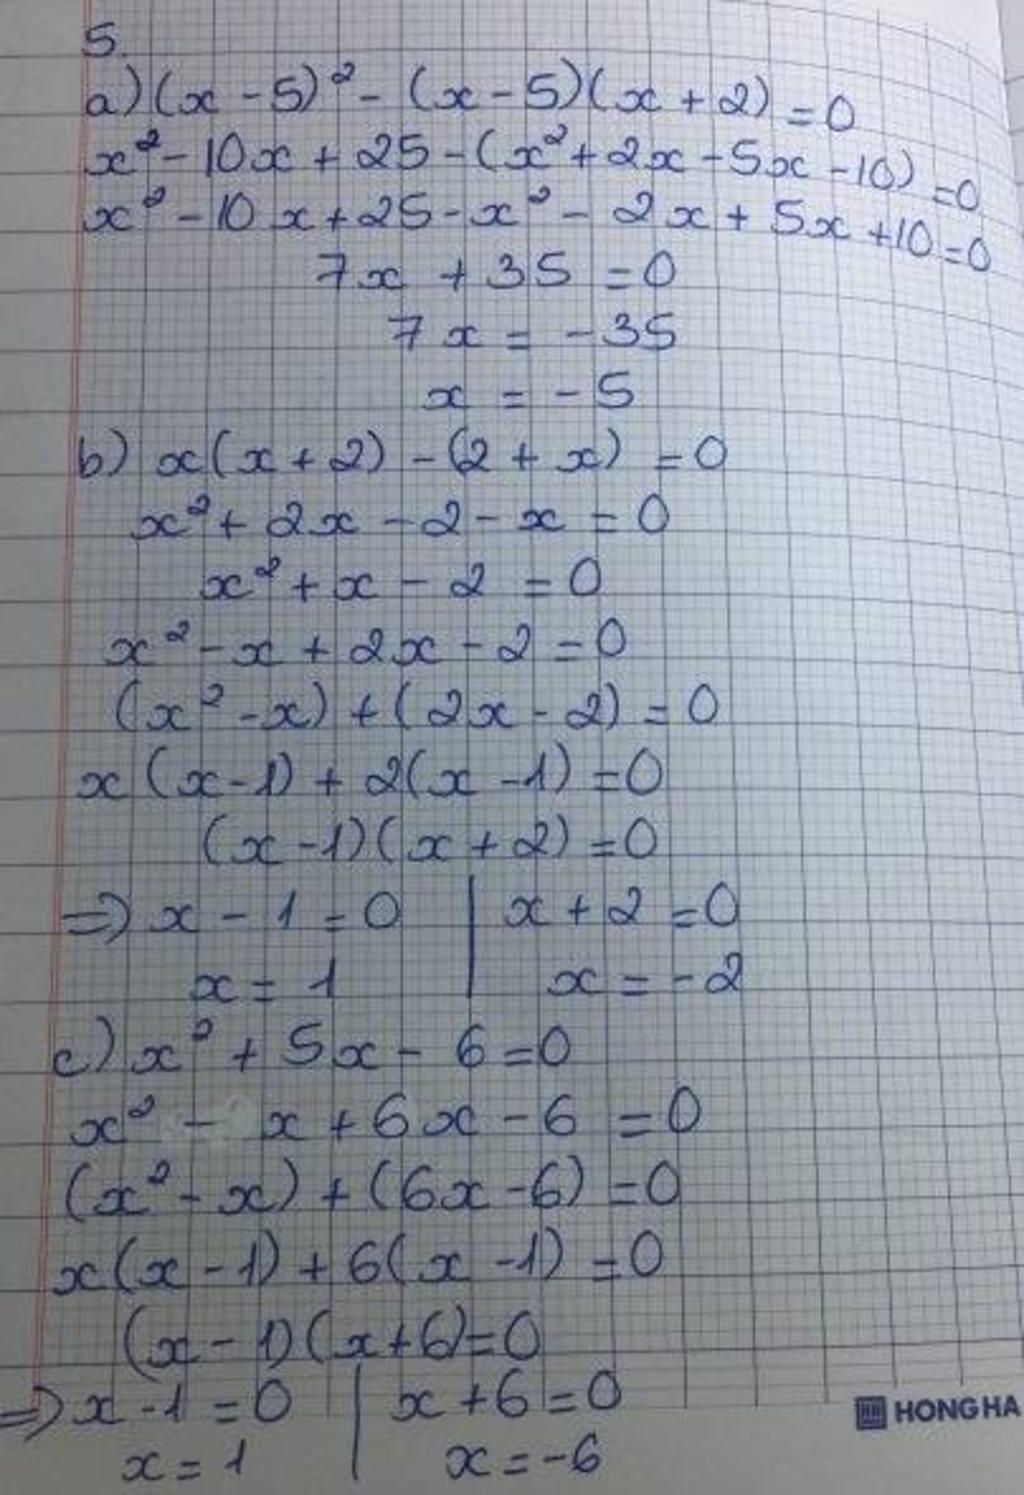 5.
a) (x - 5)² - (x - 5)(x + 2) = 0
x² - 10x + 25 - (x² + 2x - 5x - 10) = 0
x² - 10x + 25 - x² - 2x + 5x + 10 = 0
7x + 35 = 0
7x = -35
x = -5
b) x(x + 2) - (2 + x) = 0
x² + 2x - 2 - x = 0
x² + x - 2 = 0
x² - x + 2x - 2 = 0
(x² - x) + (2x - 2) = 0
x(x - 1) + 2(x - 1) = 0
(x - 1)(x + 2) = 0
=> x - 1 = 0 | x + 2 = 0
x = 1 | x = -2
c) x² + 5x - 6 = 0
x² - x + 6x - 6 = 0
(x² - x) + (6x - 6) = 0
x(x - 1) + 6(x - 1) = 0
(x - 1)(x + 6) = 0
=> x - 1 = 0 | x + 6 = 0
x = 1 | x = -6
HONG HA